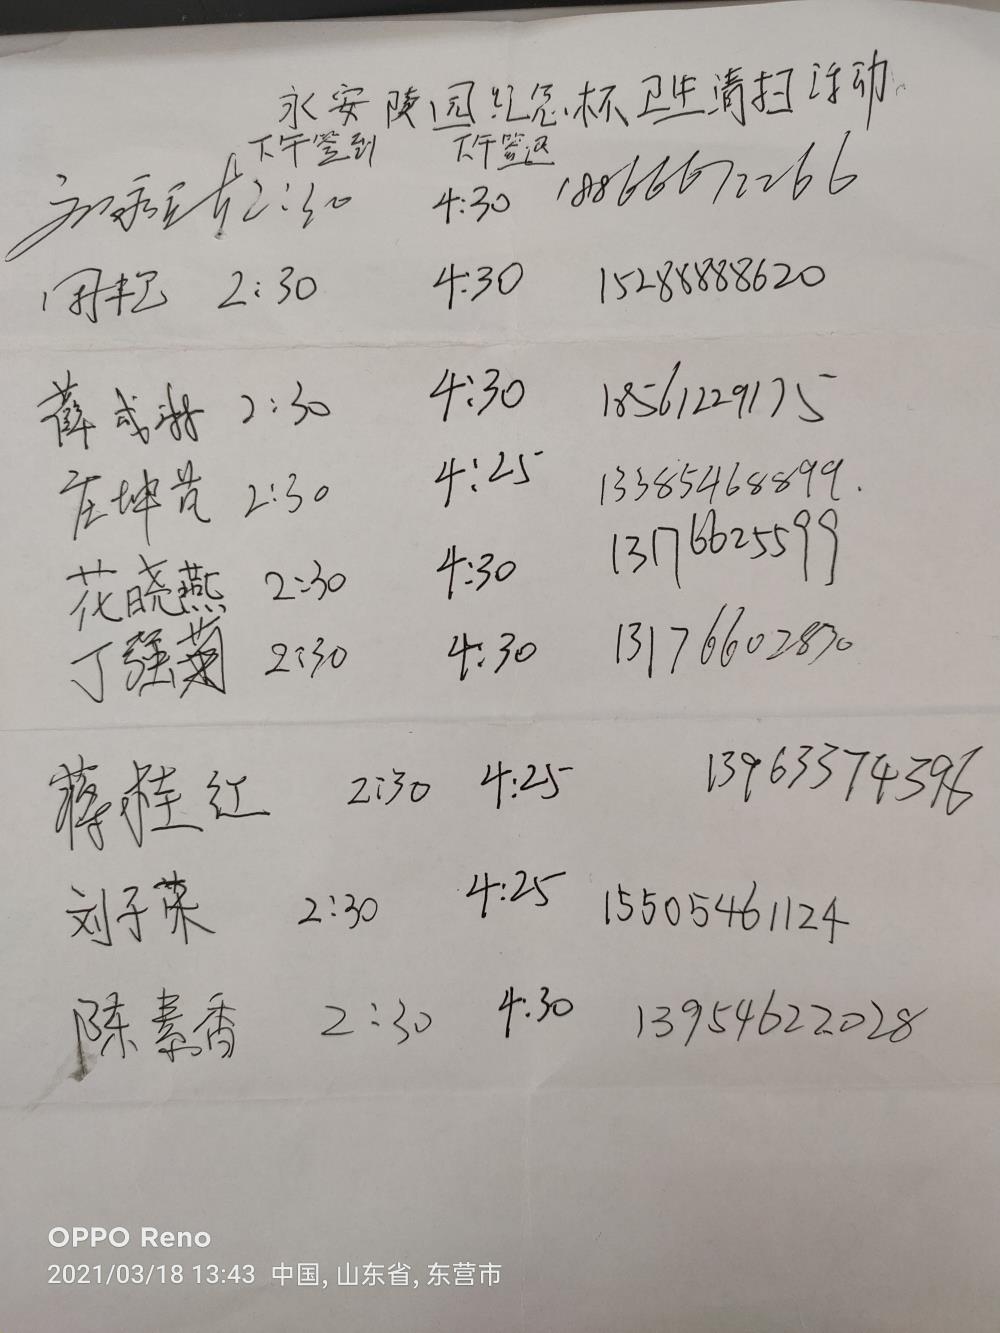 永安陵园纪念林卫生清扫活动
下午签到 下午签退
2:30 4:30 18866672266
周丰艳 2:30 4:30 15288888620
薛成 2:30 4:30 18561229175
庄坤 2:30 4:25 13385468899.
花晓燕 2:30 4:30 13176625599
丁强菊 2:30 4:30 13176602830
蒋桂红 2:30 4:25 13963374396
刘子荣 2:30 4:25 15505461124
陈素香 2:30 4:30 13954622028
OPPO Reno
2021/03/18 13:43 中国, 山东省, 东营市